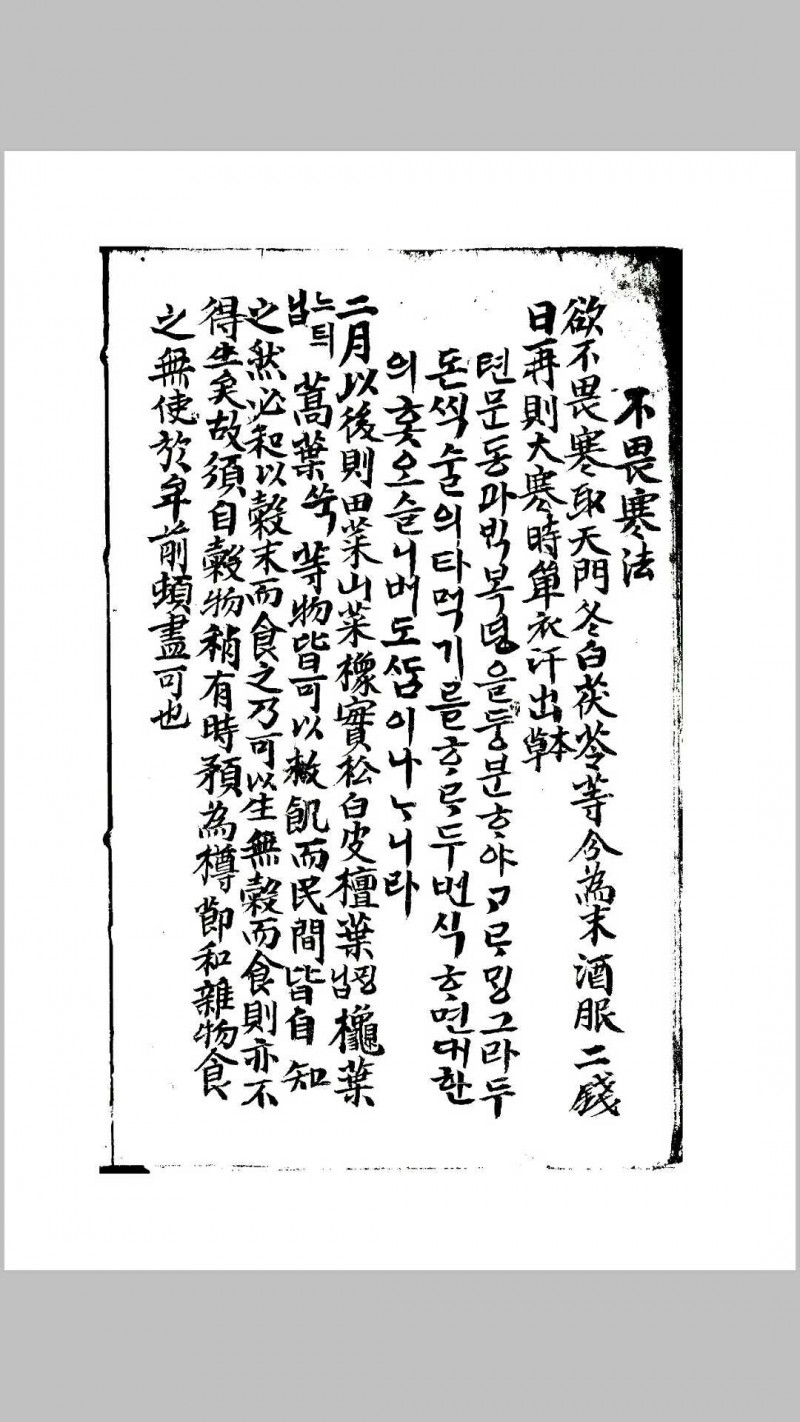 不畏寒法
欲不畏寒取天門冬白茯苓等分為末酒服二錢
日再則大寒時單衣汗出本草
텬문동과ᄇᆡᆨ복녕을등분ᄒᆞ야ᄀᆞᄅᆞᄆᆡᆼ그라두
돈씩술의타먹기ᄅᆞᆯᄒᆞᄅᆞ두번식ᄒᆞ면대한
의홋오슬니버도ᄯᆞᆷ이나ᄂᆞ니라
二月以後則田菜山菜橡實松白皮檀葉닙 欃葉
느틔닙 蒿葉쑥 等物皆可以救飢而民間皆自知
之然必和以穀末而食之乃可以生無穀而食則亦不
得生矣故須自穀物稍有時預為樽節和雜物食
之無使於年前頓盡可也